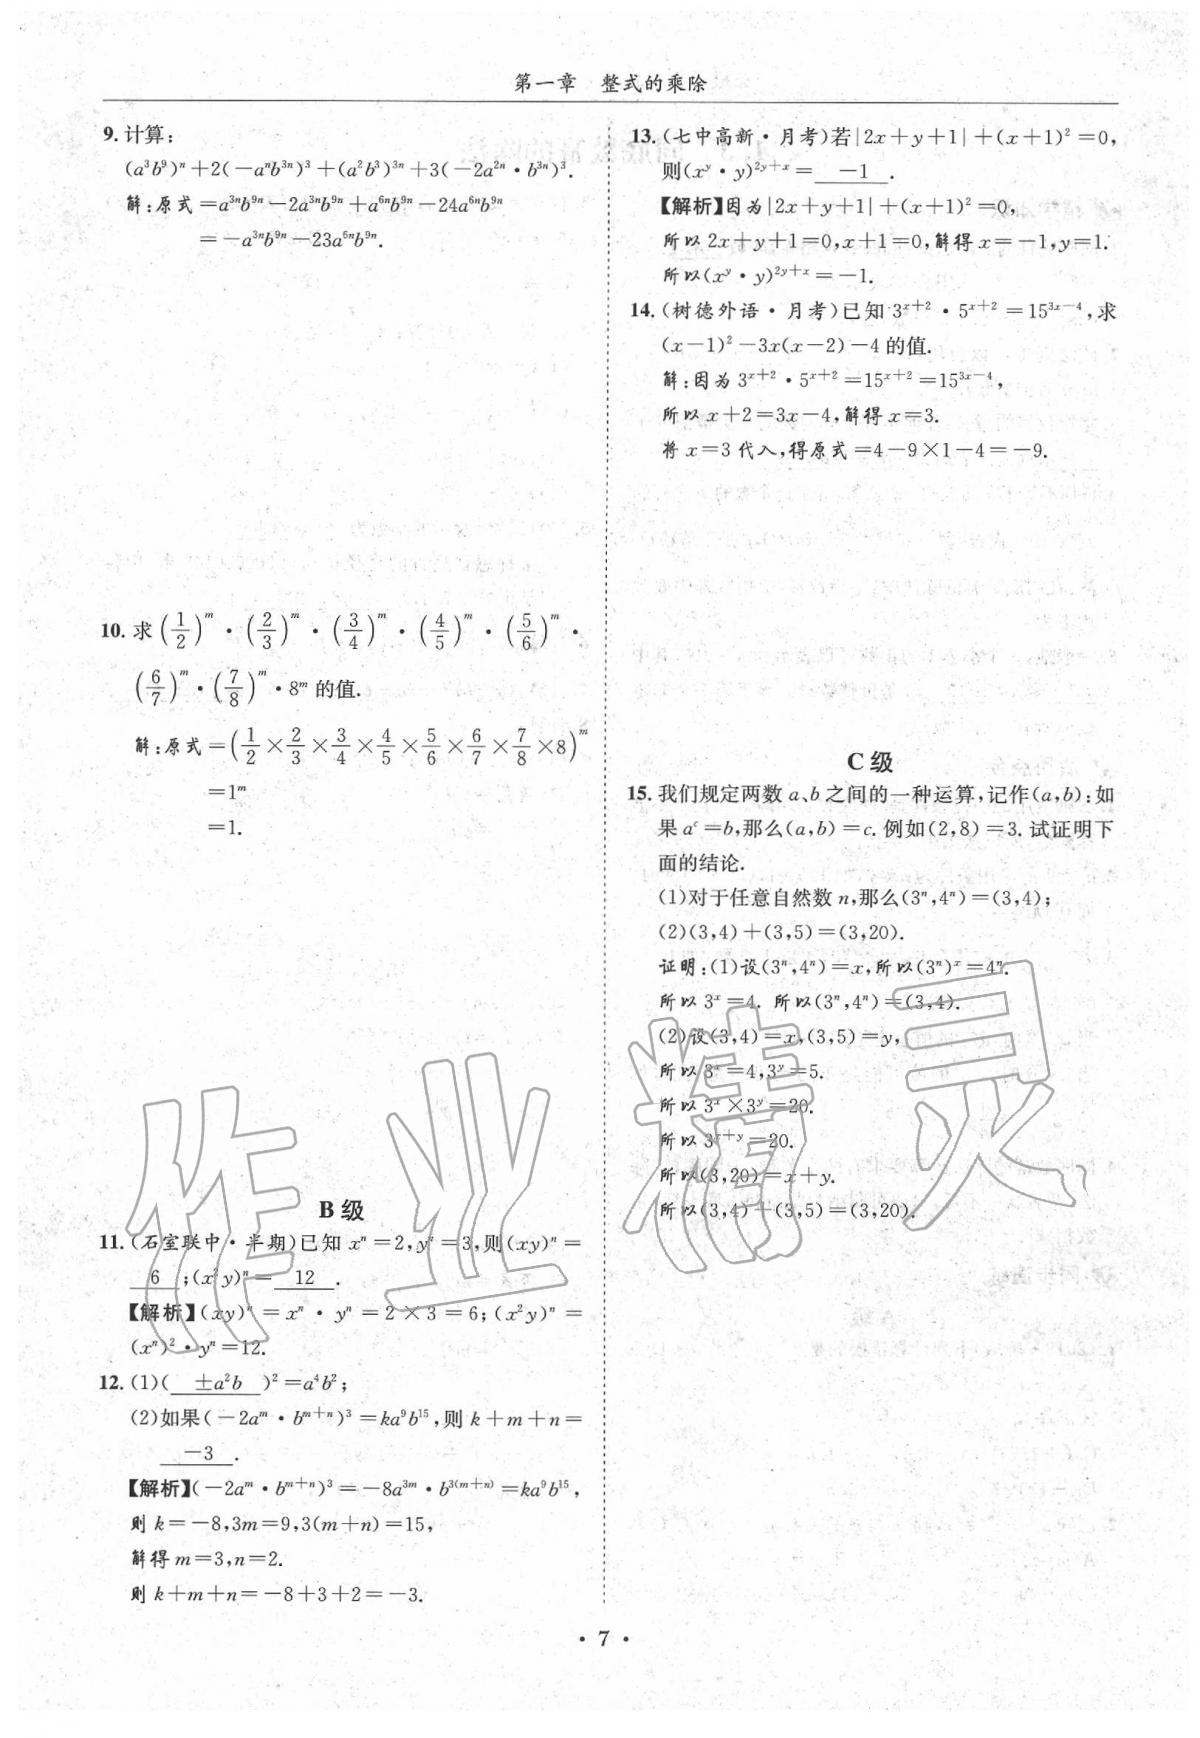 第一章　整式的乘除
9. 计算：
(a³b⁹)ⁿ+2(-aⁿb³ⁿ)³+(a²b³)³ⁿ+3(-2a²ⁿ·b³ⁿ)³.
解：原式=a³ⁿb⁹ⁿ-2a³ⁿb⁹ⁿ+a⁶ⁿb⁹ⁿ-24a⁶ⁿb⁹ⁿ
=-a³ⁿb⁹ⁿ-23a⁶ⁿb⁹ⁿ.
10. 求(1/2)ᵐ·(2/3)ᵐ·(3/4)ᵐ·(4/5)ᵐ·(5/6)ᵐ·
(6/7)ᵐ·(7/8)ᵐ·8ᵐ的值.
解：原式=(1/2×2/3×3/4×4/5×5/6×6/7×7/8×8)ᵐ
=1ᵐ
=1.
B级
11. (石室联中·半期)已知xⁿ=2,yⁿ=3,则(xy)ⁿ=
6;(x²y)ⁿ=12.
【解析】(xy)ⁿ=xⁿ·yⁿ=2×3=6;(x²y)ⁿ=
(xⁿ)²·yⁿ=12.
12. (1)(±a²b)²=a⁴b²;
(2)如果(-2aᵐ·bᵐ⁺ⁿ)³=ka⁹b¹⁵,则k+m+n=
-3.
【解析】(-2aᵐ·bᵐ⁺ⁿ)³=-8a³ᵐ·b³⁽ᵐ⁺ⁿ⁾=ka⁹b¹⁵,
则k=-8,3m=9,3(m+n)=15,
解得m=3,n=2.
则k+m+n=-8+3+2=-3.
13. (七中高新·月考)若|2x+y+1|+(x+1)²=0,
则(xʸ·y)²ʸ⁺ˣ=-1.
【解析】因为|2x+y+1|+(x+1)²=0,
所以2x+y+1=0,x+1=0,解得x=-1,y=1.
所以(xʸ·y)²ʸ⁺ˣ=-1.
14. (树德外语·月考)已知3ˣ⁺²·5ˣ⁺²=15³ˣ⁻⁴,求
(x-1)²-3x(x-2)-4的值.
解：因为3ˣ⁺²·5ˣ⁺²=15ˣ⁺²=15³ˣ⁻⁴,
所以x+2=3x-4,解得x=3.
将x=3代入,得原式=4-9×1-4=-9.
C级
15. 我们规定两数a、b之间的一种运算,记作(a,b)：如
果aᶜ=b,那么(a,b)=c.例如(2,8)=3.试证明下
面的结论.
(1)对于任意自然数n,那么(3ⁿ,4ⁿ)=(3,4);
(2)(3,4)+(3,5)=(3,20).
证明：(1)设(3ⁿ,4ⁿ)=x,所以(3ⁿ)ˣ=4ⁿ.
所以3ˣ=4.所以(3ⁿ,4ⁿ)=(3,4).
(2)设(3,4)=x,(3,5)=y,
所以3ˣ=4,3ʸ=5.
所以3ˣ×3ʸ=20.
所以3ˣ⁺ʸ=20.
所以(3,20)=x+y.
所以(3,4)+(3,5)=(3,20).
作业精灵
·7·